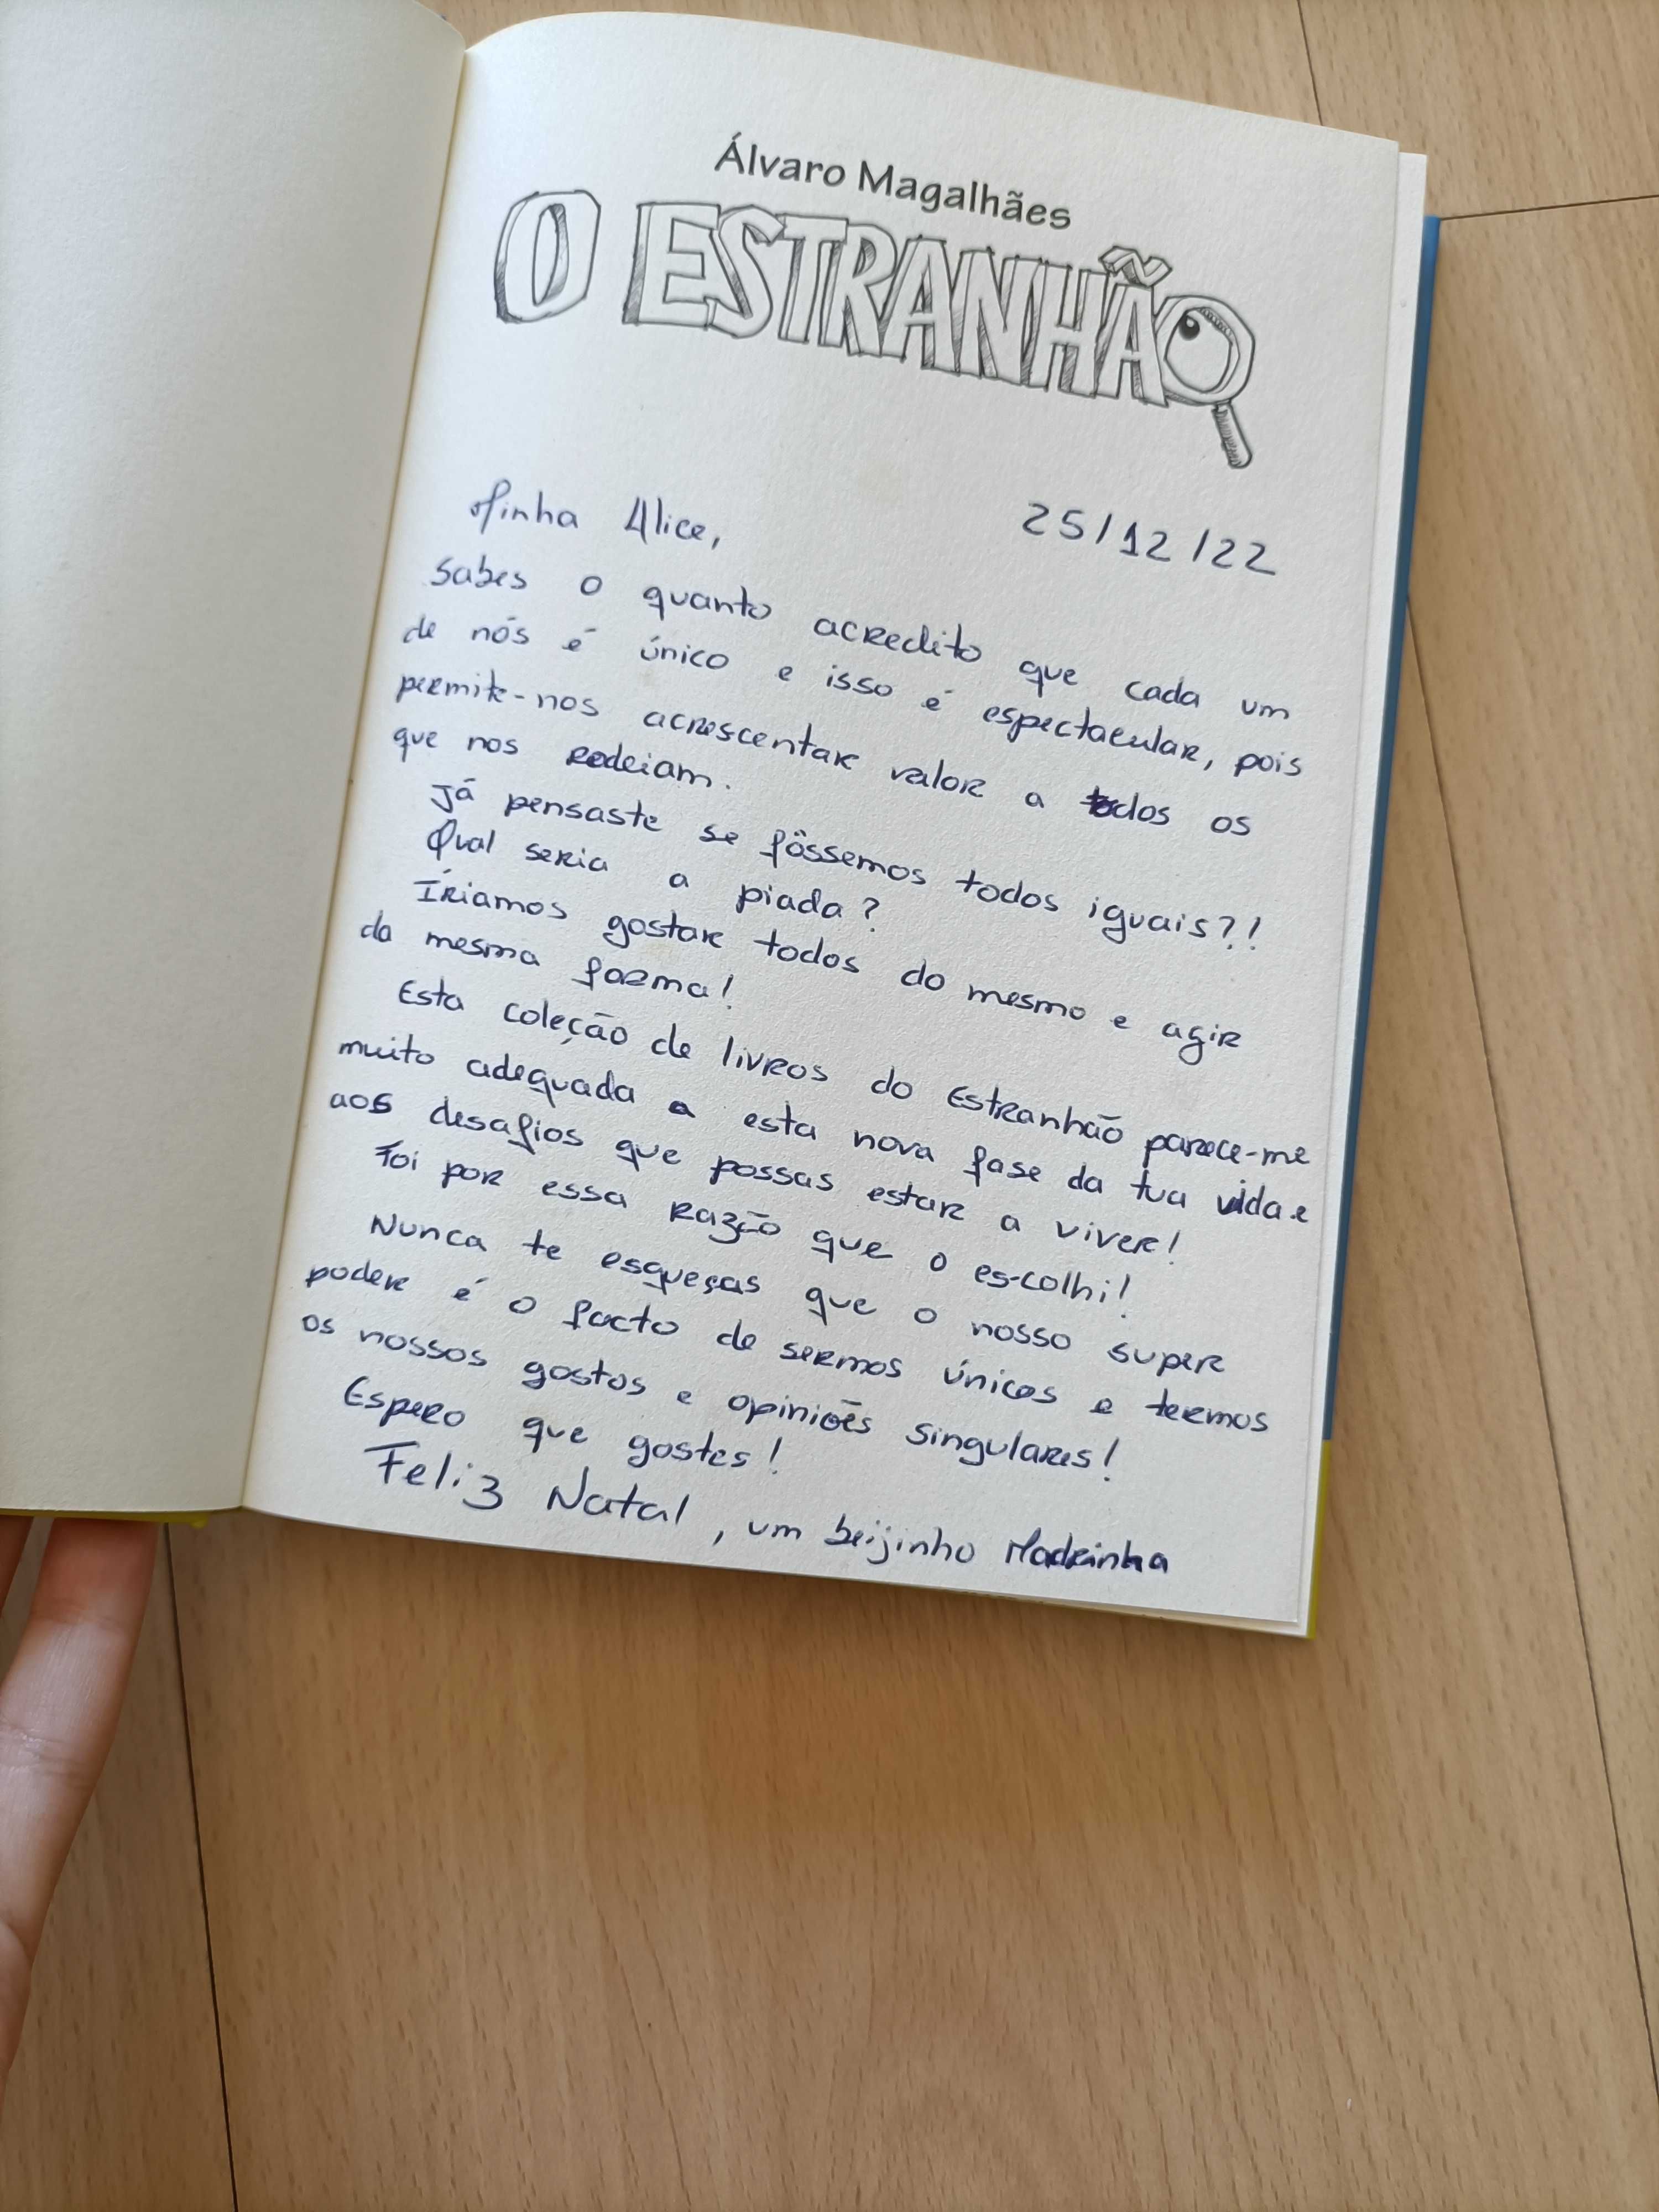 Álvaro Magalhães
O ESTRANHÃO
Minha Alice, 25/12/22
Sabes o quanto acredito que cada um
de nós é único e isso é espectacular, pois
permite-nos acrescentar valor a todos os
que nos rodeiam.
Já pensaste se fôssemos todos iguais?!
Qual seria a piada?
Íriamos gostar todos do mesmo e agir
da mesma forma!
Esta coleção de livros do Estranhão parece-me
muito adequada a esta nova fase da tua vida e
aos desafios que possas estar a viver!
Foi por essa razão que o es-colhi!
Nunca te esqueças que o nosso super
poder é o facto de sermos únicos e termos
os nossos gostos e opiniões singulares!
Espero que gostes!
Feliz Natal, um beijinho Madrinha